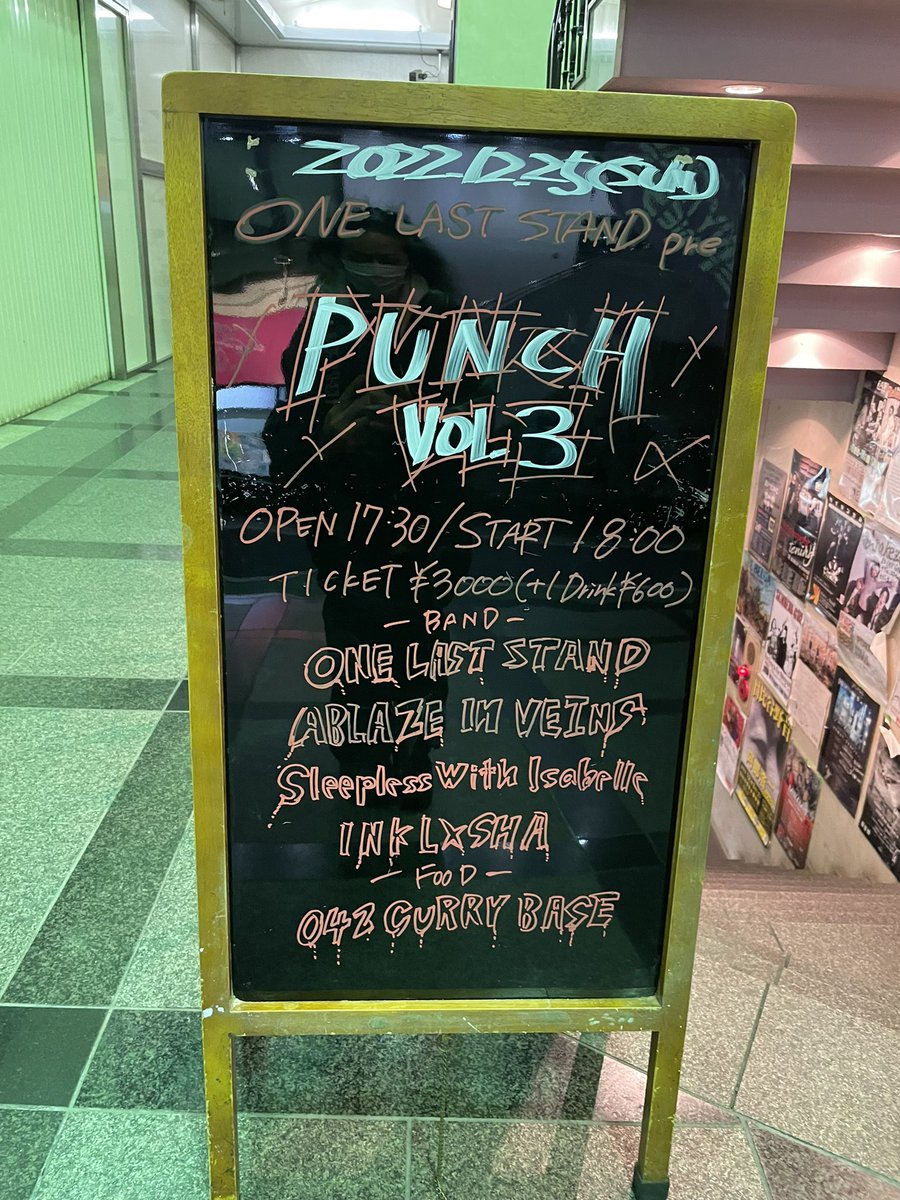 2022.12.25(SUN)
ONE LAST STAND pre
PUNCH
VOL.3
OPEN 17:30/START 18:00
TICKET ¥3000(+1 Drink¥600)
- BAND -
ONE LAST STAND
ABLAZE IN VEINS
Sleepless With Isabelle
INK L☆SHA
- FOOD -
042 CURRY BASE